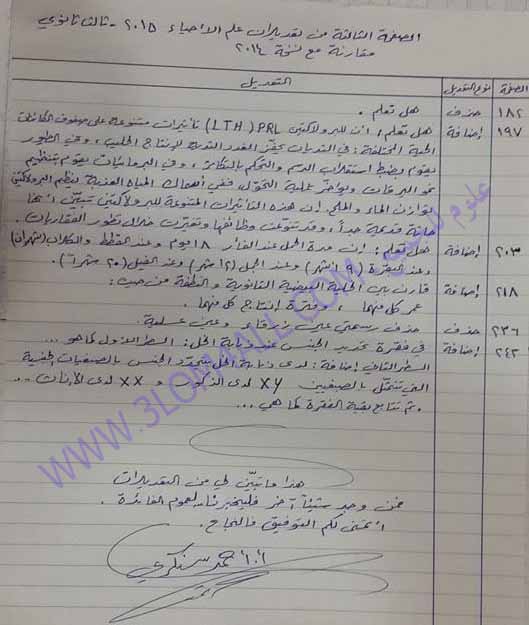 الصفحة الثالثة من تعديلات علم الأحياء ٢٠١٥ - ثالث ثانوي
مقارنة مع نسخة ٢٠١٤
الصفحة نوع التعديل التعديل
١٨٢ حذف هل تعلم .
١٩٧ إضافة هل تعلم: أن للبرولاكتين PRL (LTH) تأثيرات متنوعة على صفوف الكائنات
الحية المختلفة: في الثدييات يحفز الغدد الثديية لإنتاج الحليب، وعن الطيور
يقوم بضبط استقلاب الدسم والتحكم بالتكاثر، وفي البرمائيات يقوم بتنظيم
نمو اليرقات ويؤخر عملية التحول، ففي أسماك المياه العذبة ينظم البرولاكتين
توازن الماء والملح. إن هذه التأثيرات المتنوعة للبرولاكتين تبين أنها
حاثة قديمة جداً، وقد تنوعت وظائفها وتغيرت خلال تطور الفقاريات.
٢٠٣ إضافة هل تعلم: إن مدة الحمل عند الفأر ١٨ يوم وعند القطط والكلاب (شهران)
وعند البقرة (٩ أشهر) وعند الجمل (١٢ شهر) وعند الفيل (٢٠ شهراً).
٢١٨ إضافة قارن بين الخلية البيضية الثانوية والنطفة من حيث:
عمر كل منهما ، وفترة إنتاج كل منهما.
٢٣٦ حذف حذف رسمتي عين زرقاء وعين عسلية.
٢٤٢ إضافة في فقرة تحديد الجنس عند ذبابة الخل: السطر الأول كما هو ...
السطر الثاني إضافة: لدى ذبابة الخل يتحدد الجنس بالصبغيات الجنسية
التي تتمثل بالصبغيين XY لدى الذكور و XX لدى الإناث ...
. ثم تتابع بقية الفقرة كما هي ...
هذا ما تبيّن لي من التعديلات
فمن وجد شيئاً آخر فليخبرنا لعموم الفائدة .
أتمنى لكم التوفيق والنجاح.
أ. أحمد سنكري
علوم للجميع
WWW.3LOM4ALL.COM